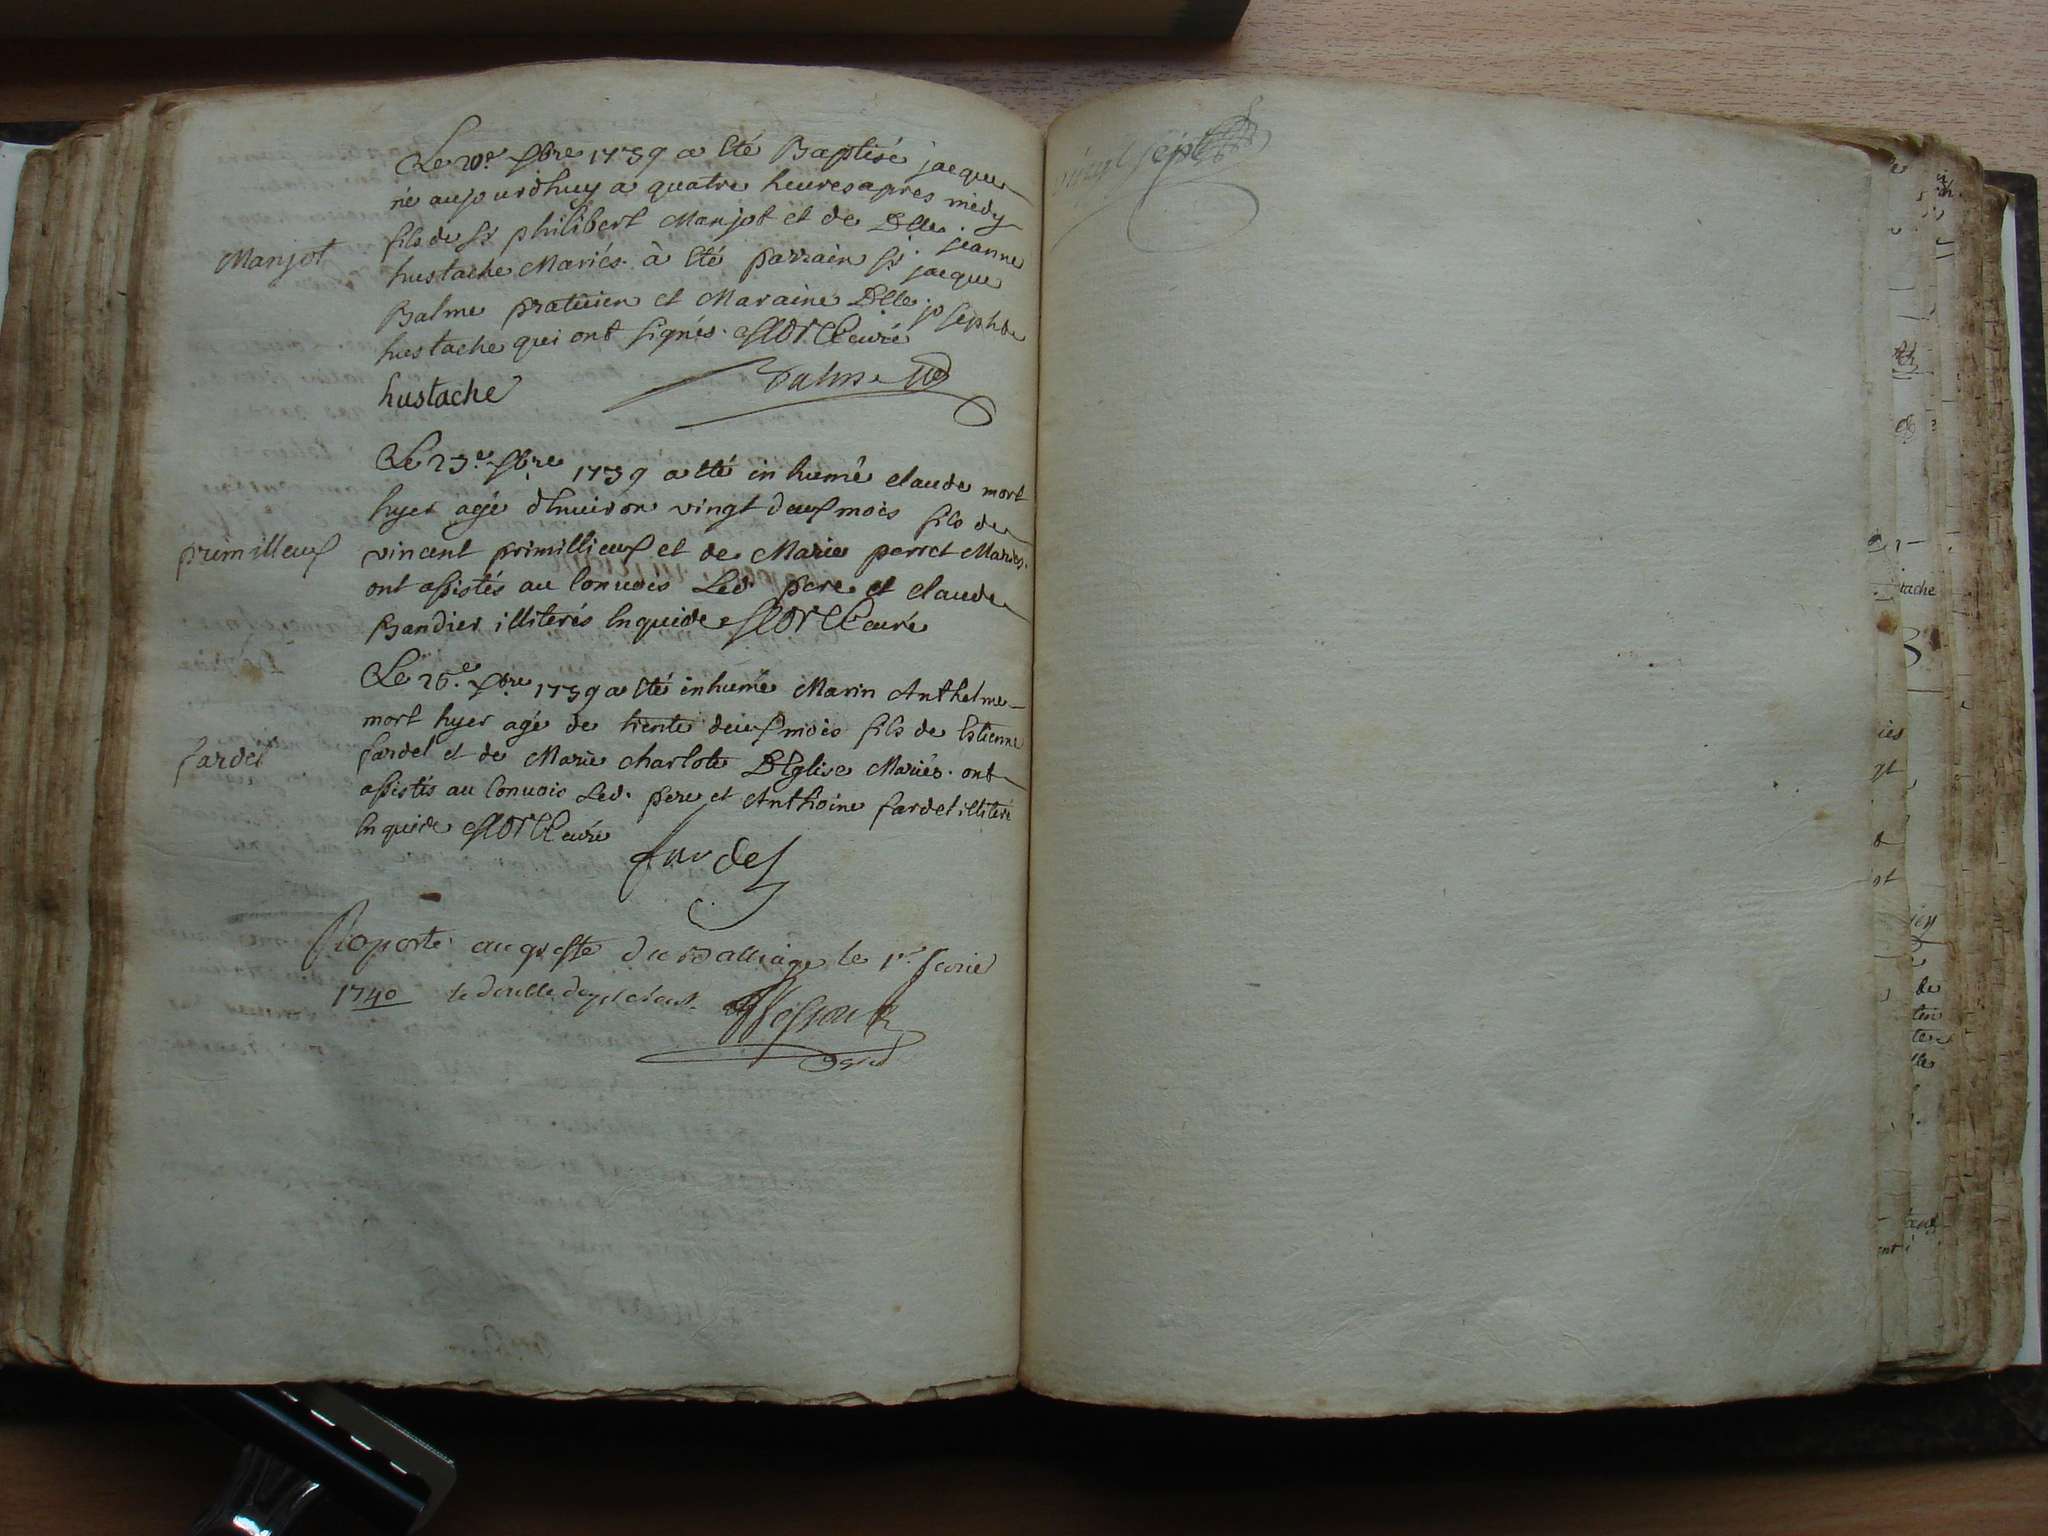 Le 20e Xbre 1739 a été Baptisé jacque
né aujourdhuy a quatre heures apres midy
fils de sr philibert Manjot et de Dlle jeanne
Manjot
hustache Mariés. à été parrain sr. jacque
Balme praticien et Maraine Dlle josephte
hustache qui ont signés. curé
hustache
Balme
Le 23e Xbre 1739 a été inhumé claude mort
hyer agé d'Enuiron vingt deux mois fils de
primilleux
vincent primillieux et de Marie perret Mariés.
ont assistés au Conuois Led. pere et claude
Bandier illiterés Enquis de curé
Le 26e. Xbre 1739 a été inhumé Marin Anthelme
mort hyer agé de trente deux mois fils de Estienne
fardel
fardel et de Marie charlote DEglise Mariés. ont
assistés au Conuois Led. pere et Anthoine fardel illiteré
Enquis de curé
fardel
Raporté au greffe du Balliage le 1er feurier
1740 le double
vingt sept